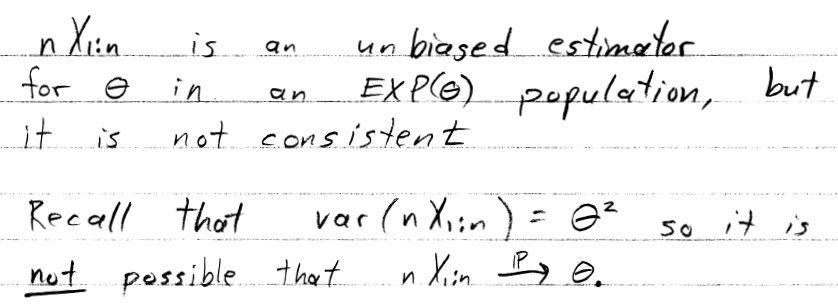 n X₁:n is an unbiased estimator
for θ in an EXP(θ) population, but
it is not consistent
Recall that var(n X₁:n) = θ² so it is
not possible that n X₁:n →ᴾ θ.